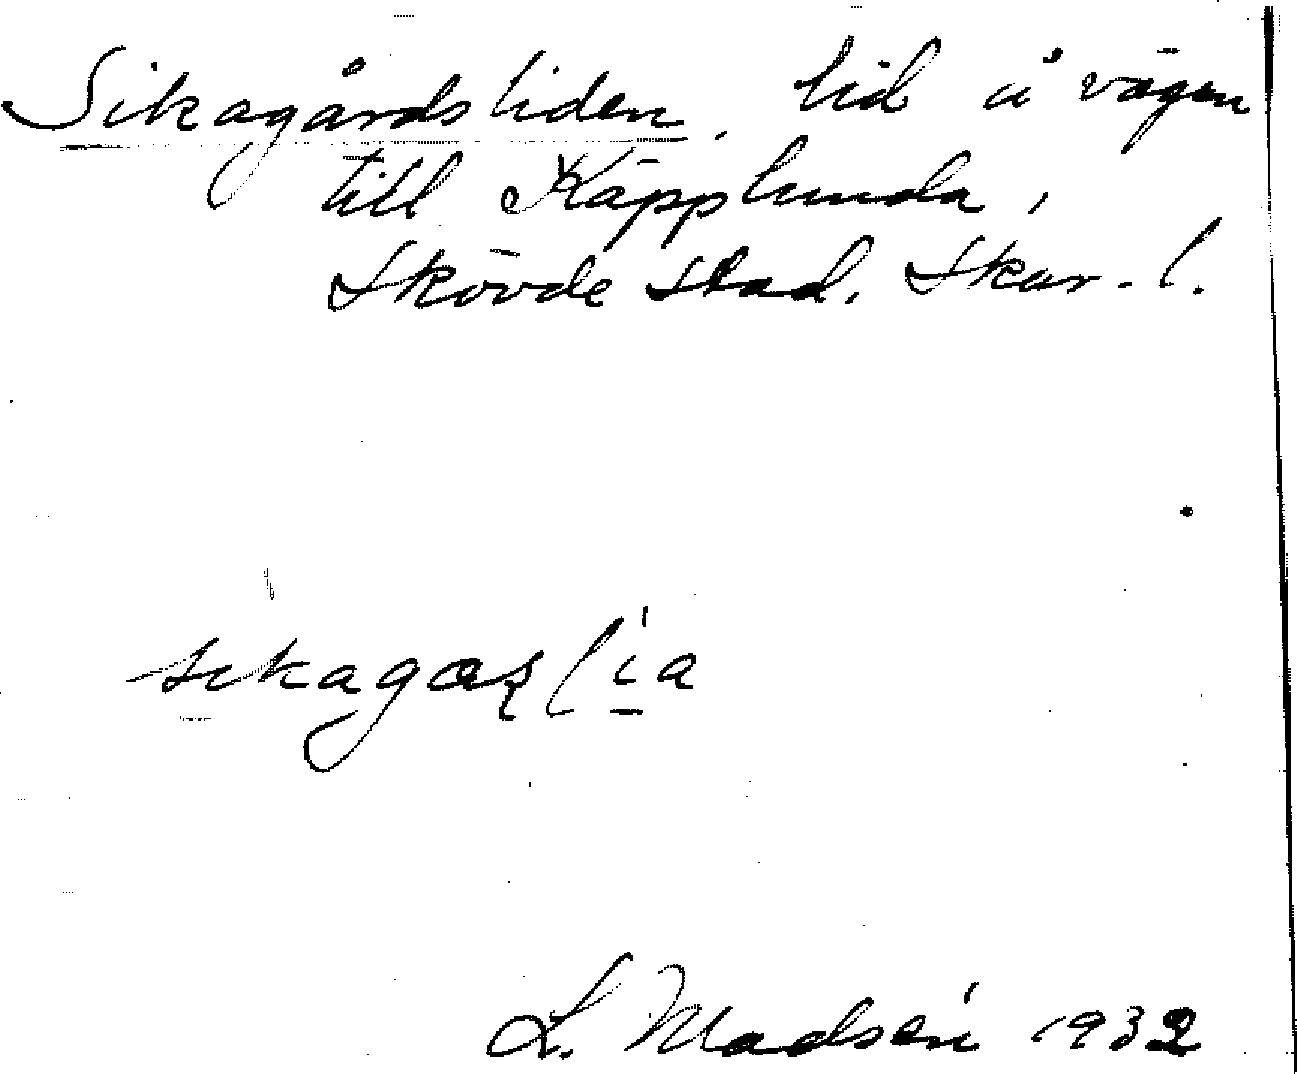 Sikagårdsliden, lid å vägen
till Käpplunda,
Skövde stad, Skar. l.
sikagaʂlia
L. Madsén 1932